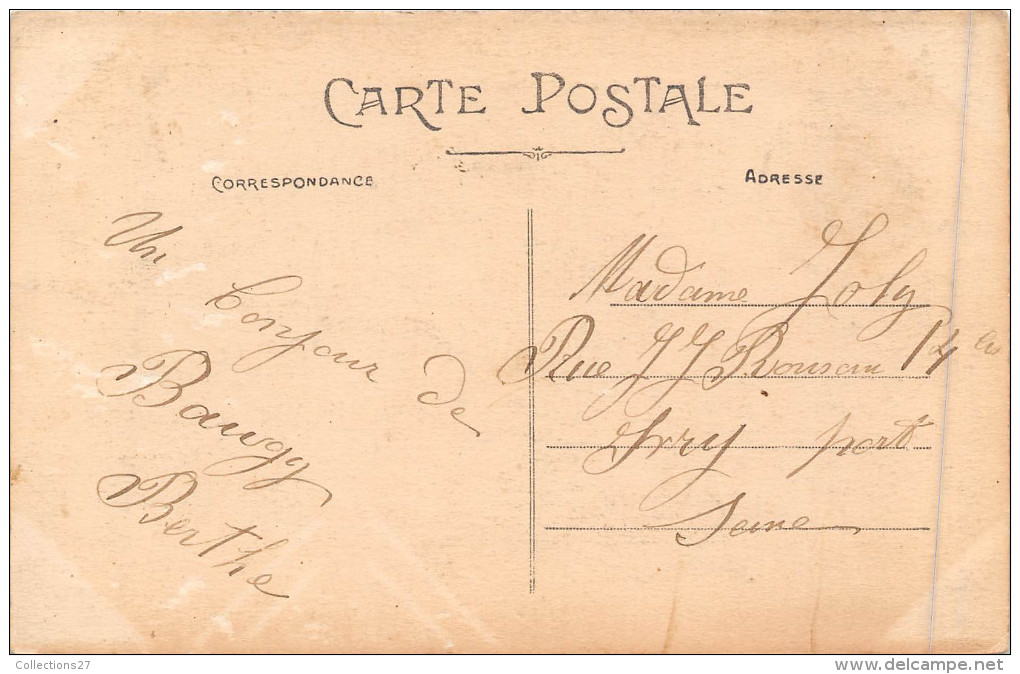 CARTE POSTALE
CORRESPONDANCE
ADRESSE
Un
bonjour de
Baugy
Berthe
Madame Joly
Rue JJ Rousseau 14
Ivry port
Seine
Collections27
www.delcampe.net